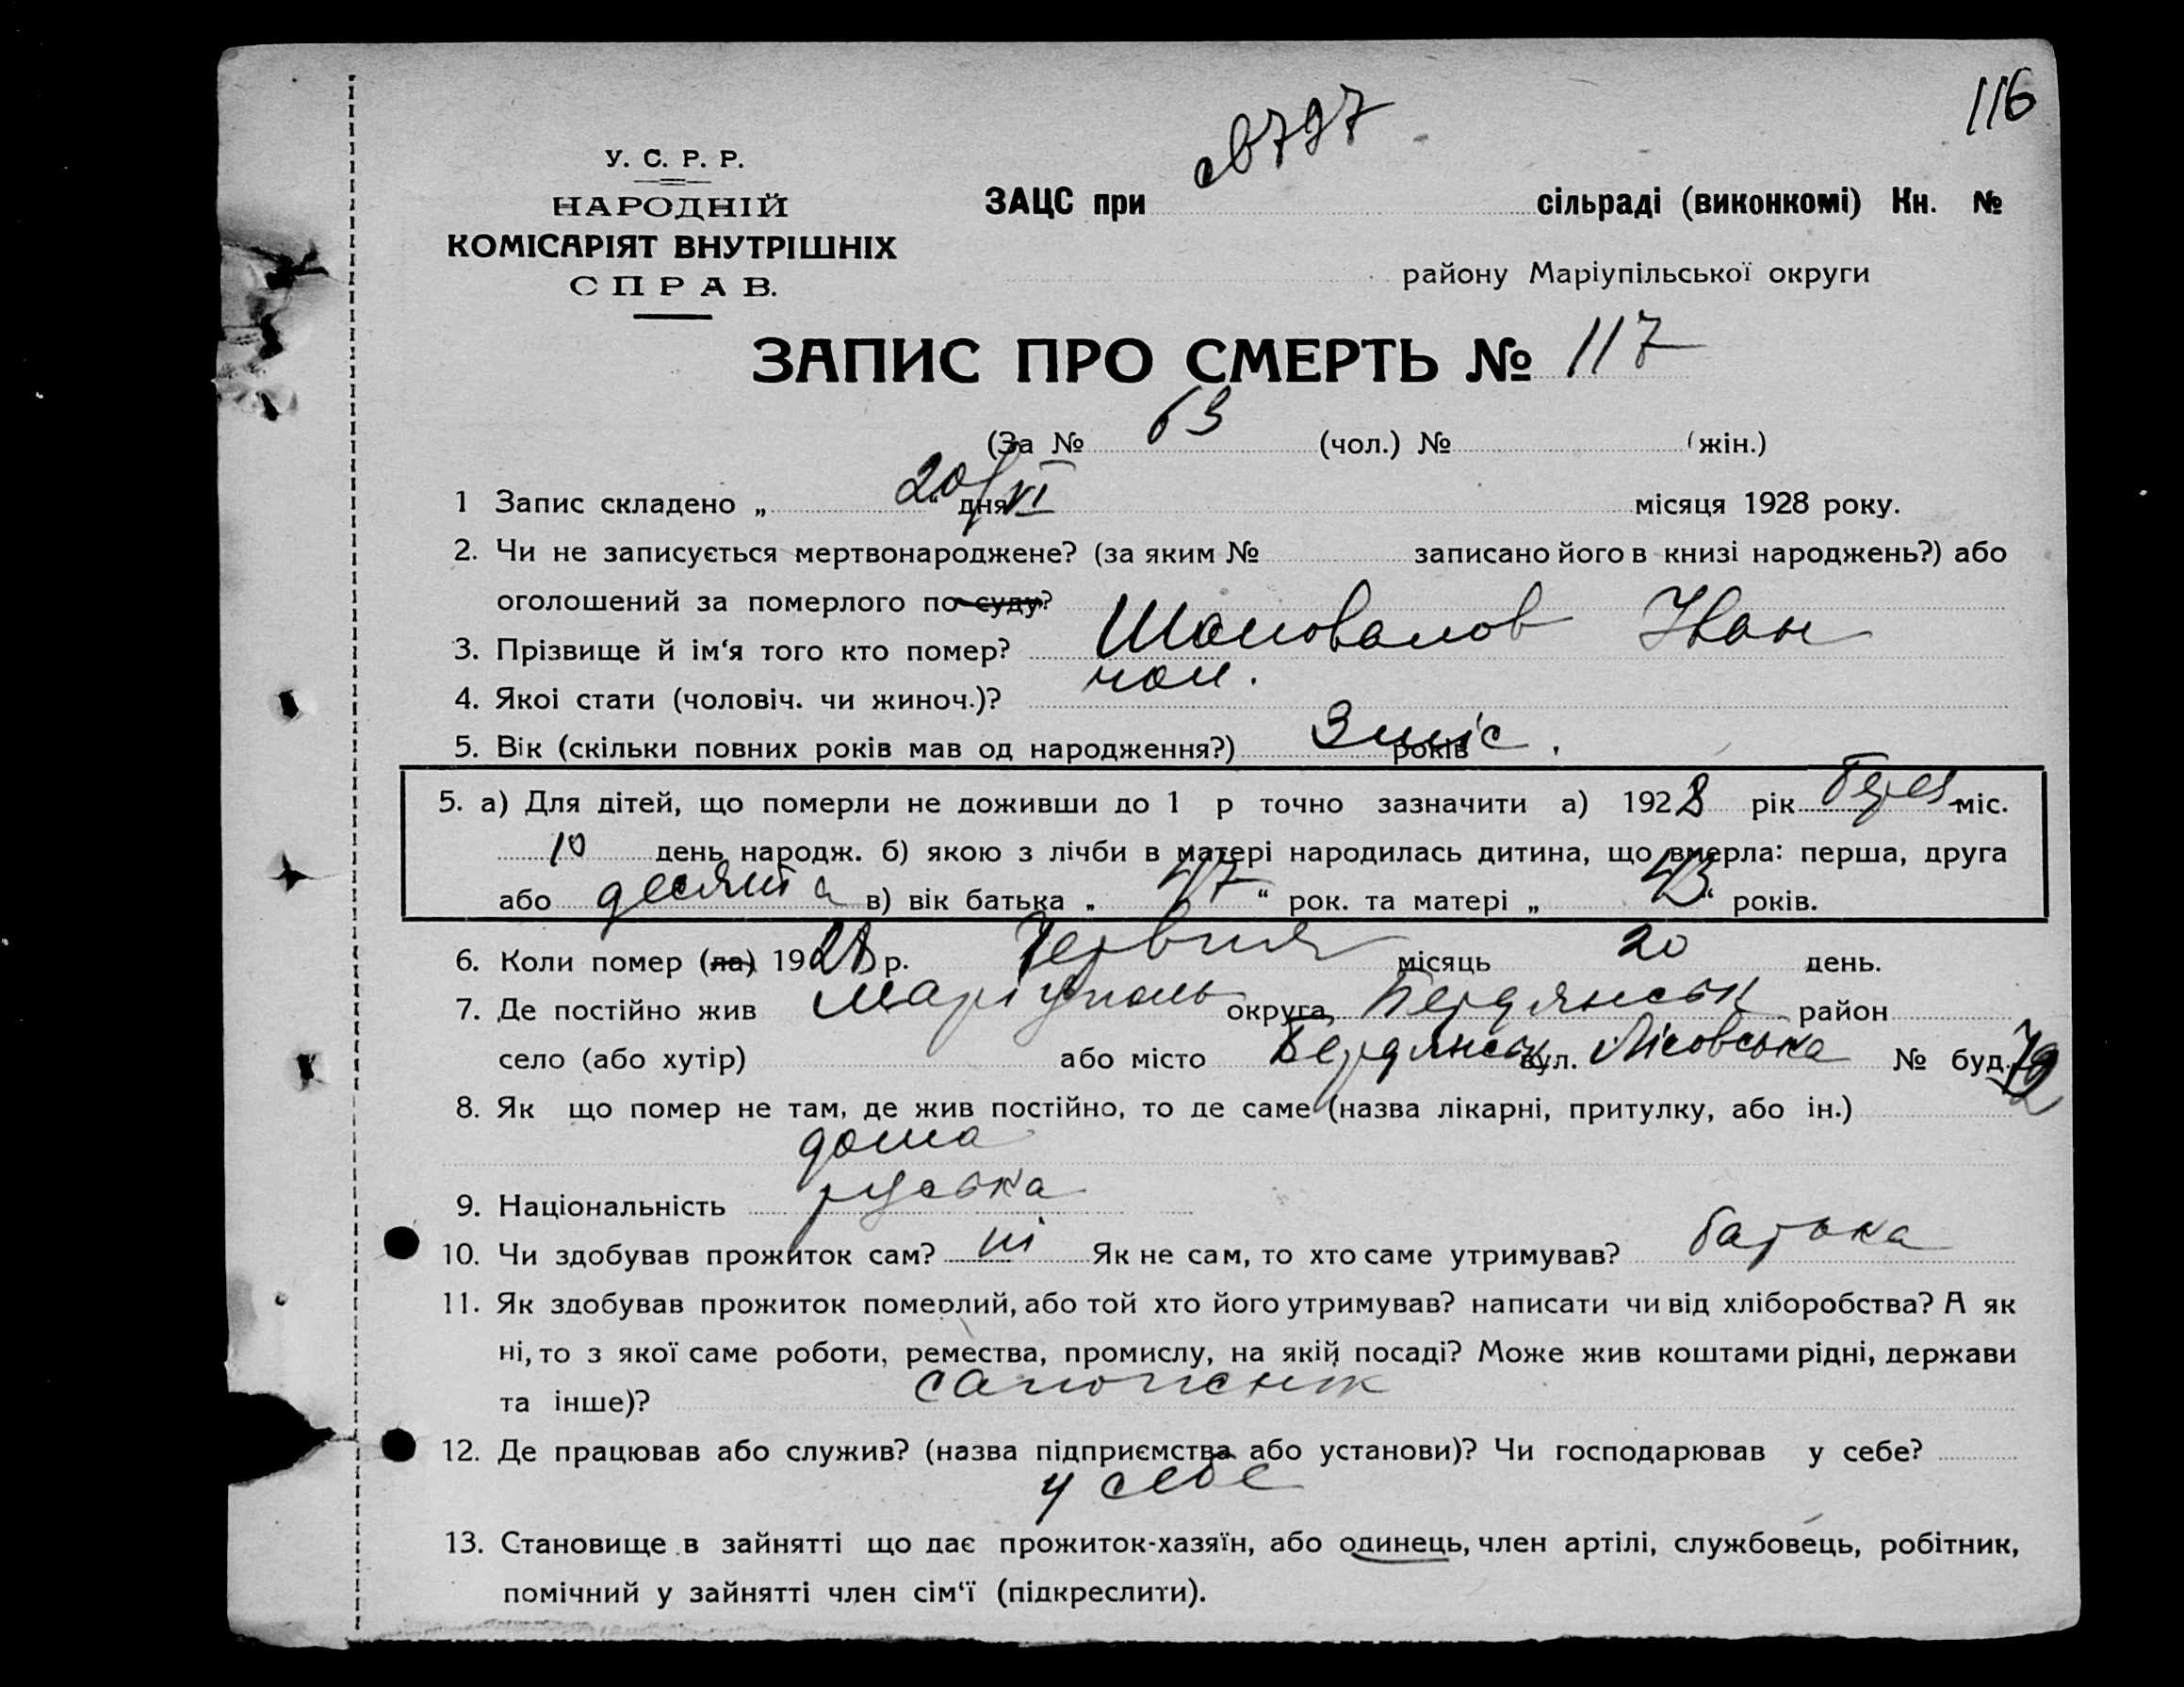 116
св 797
У. С. Р. Р.
НАРОДНІЙ
КОМІСАРІЯТ ВНУТРІШНІХ
СПРАВ.
ЗАЦС при сільраді (виконкомі) Кн. №
району Маріупільської округи
ЗАПИС ПРО СМЕРТЬ № 117
(За № 63 (чол.) № (жін.)
1 Запис складено „ 20/VI “ дня місяця 1928 року.
2. Чи не записується мертвонароджене? (за яким № записано його в книзі народжень?) або
оголошений за померлого по суду?
3. Прізвище й ім‘я того кто помер? Шаповалов Іван
4. Якоі стати (чоловіч. чи жиноч.)? чол.
5. Вік (скільки повних років мав од народження?) 3 міс. років
5. а) Для дітей, що померли не доживши до 1 р точно зазначити а) 1928 рік берез міс.
10 день народж. б) якою з лічби в матері народилась дитина, що вмерла: перша, друга
або десята в) вік батька „ 47 “ рок. та матері „ 43 “ років.
6. Коли помер (ла) 1928 р. Червня місяць 20 день.
7. Де постійно жив Маріуполь округа Бердянськ район
село (або хутір) або місто Бердянськ вул. Лісовська № буд. 72
8. Як що помер не там, де жив постійно, то де саме (назва лікарні, притулку, або ін.)
дома
9. Національність руська
10. Чи здобував прожиток сам? ні Як не сам, то хто саме утримував? батька
11. Як здобував прожиток померлий, або той хто його утримував? написати чи від хліборобства? А як
ні, то з якої саме роботи, ремества, промислу, на якій посаді? Може жив коштами рідні, держави
та інше)? сапожник
12. Де працював або служив? (назва підприємства або установи)? Чи господарював у себе?
у себе
13. Становище в зайнятті що дає прожиток-хазяїн, або одинець, член артілі, службовець, робітник,
помічний у зайнятті член сім‘ї (підкреслити).